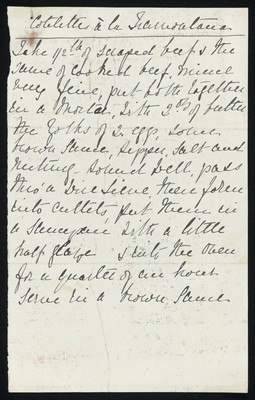 Cotelettes à la Tramontana
Take 1/2 lb of scraped beef & the
same of cooked beef, mince
very fine, put both together
in a Mortar, with 2 oz of butter
the Yolks of 2 eggs, some
brown Sauce, pepper, salt and
nutmeg - pound well, pass
thro' a wire sieve, then form
into cutlets, put them in
a saucepan with a little
half glaze & into the Oven
for a quarter of an hour
serve in a brown Sauce